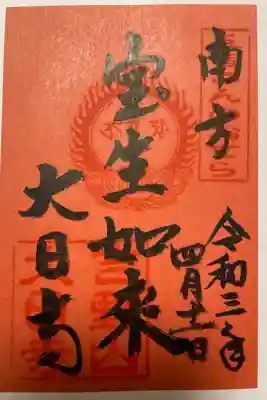 南方
令和三年
四月十一日
宝生如来
大日寺